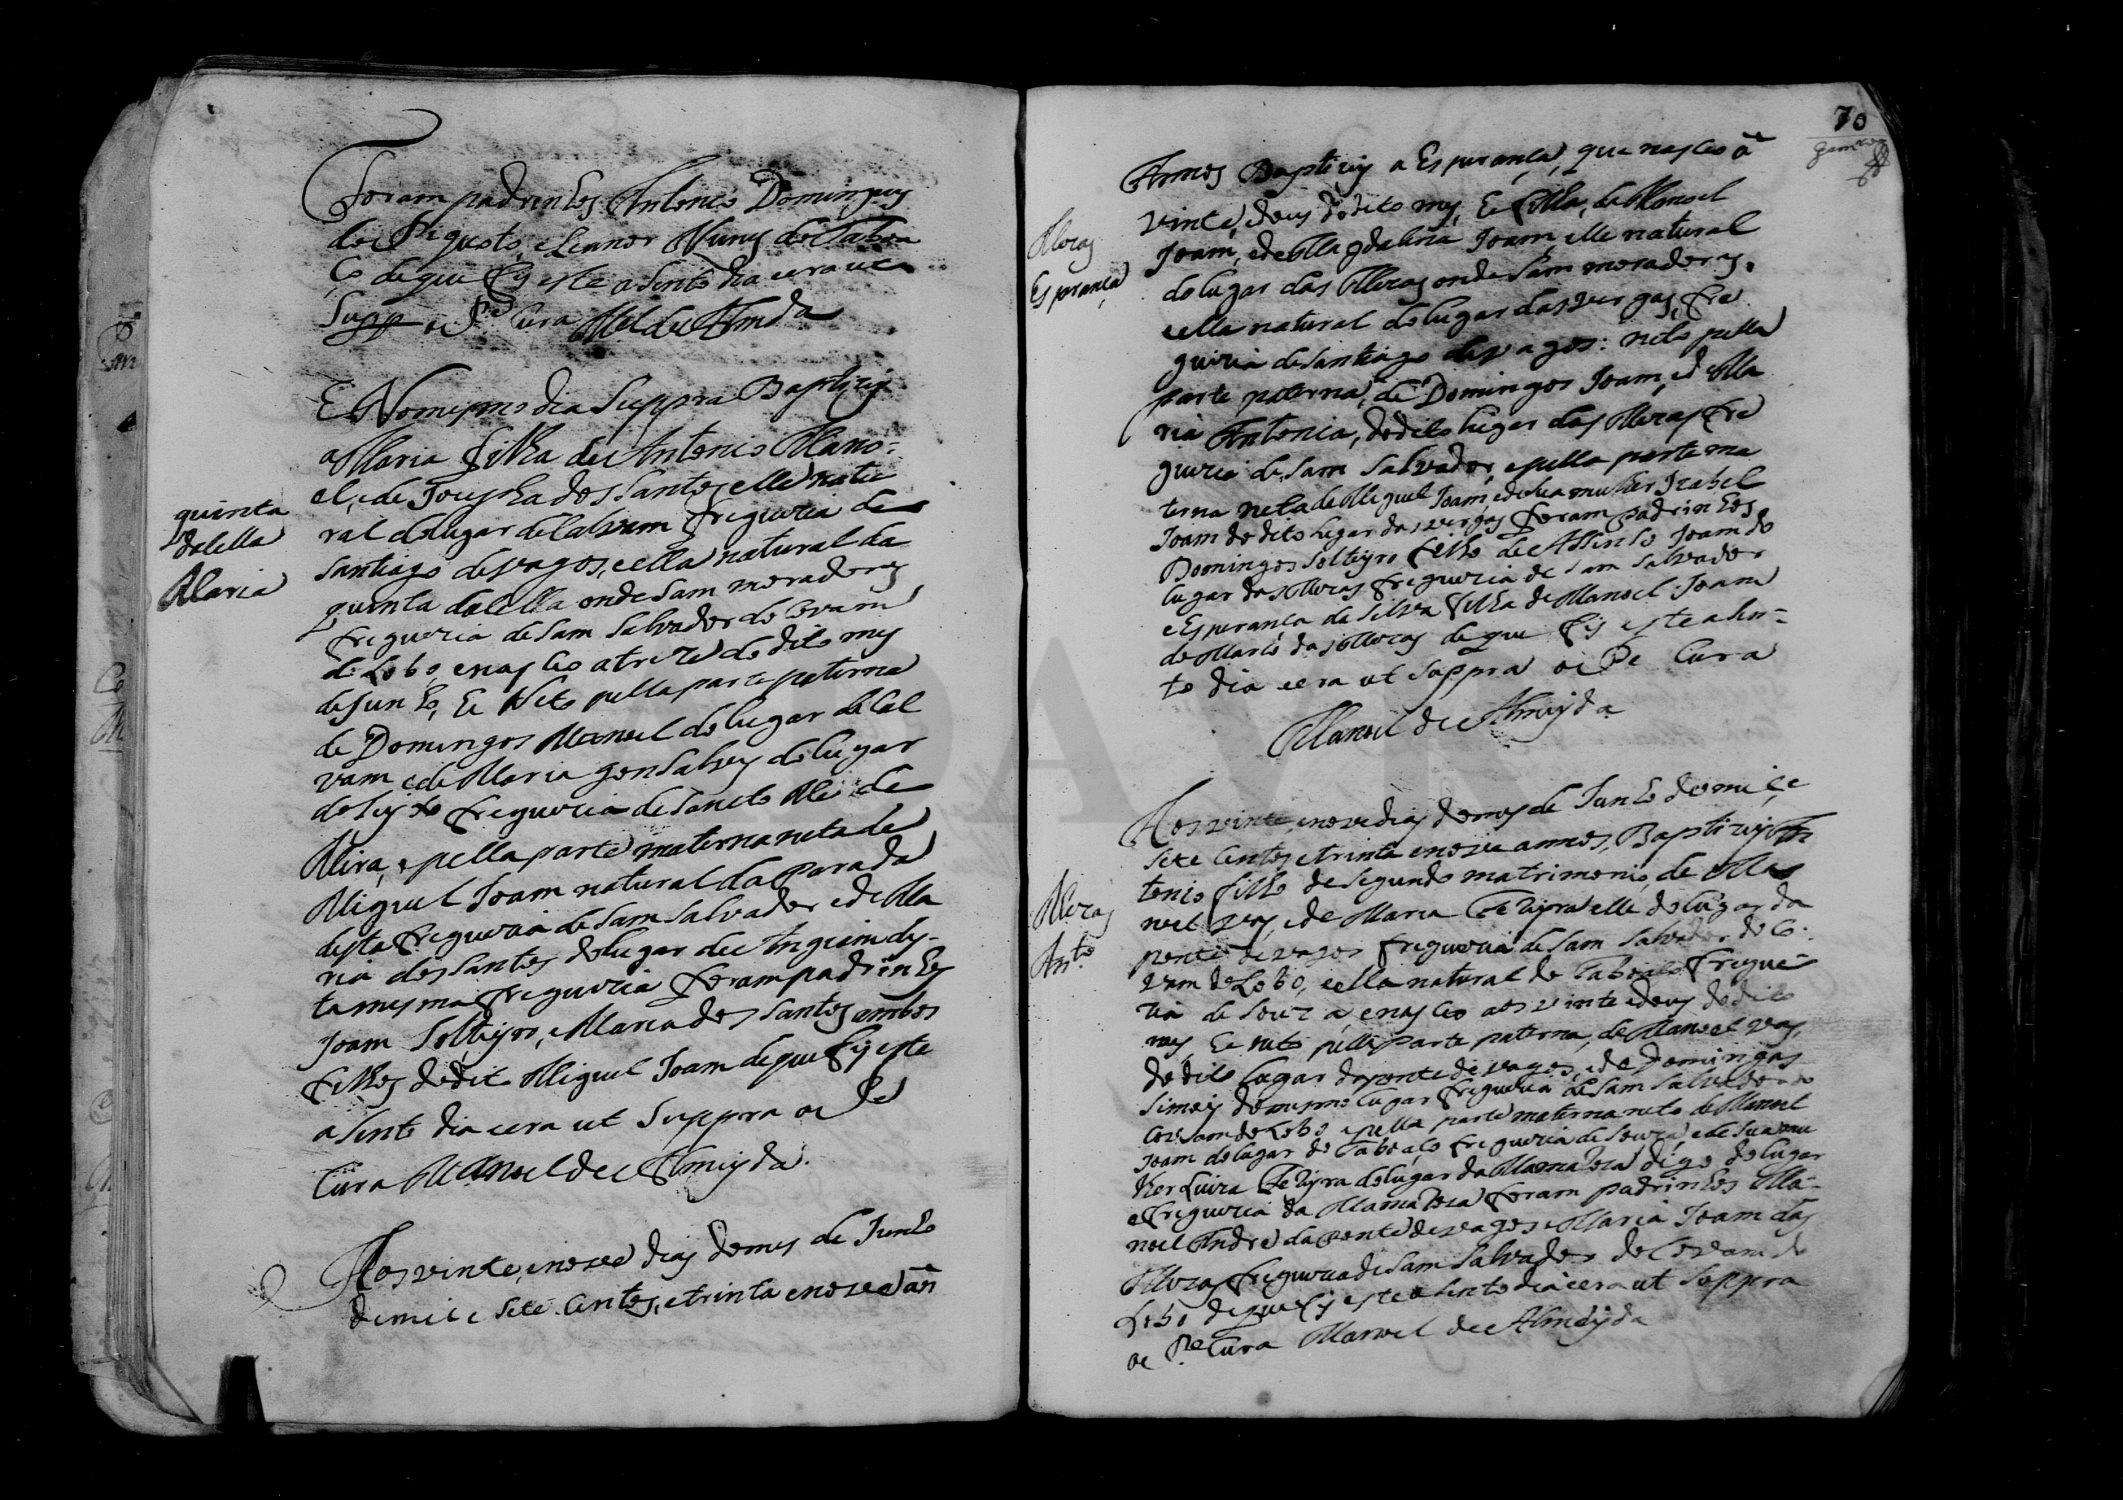 Foram padrinhos Antonio Domingues
do gusto, e Leanor Nunes do Taboa
ço de que fis este asento dia era ut
Supp o Pe Cura Mel de Almda
E Nomesmo dia Suppra Baptizey
a Maria filha de Antonio Mano=
el, e de Josepha dos Santos elle natu
ral do lugar de Calvam freguezia de
Santiago de vagos, e ella natural da
quinta da lella onde sam moradores
freguezia de Sam Salvador do Covam
do Lobo, e nasceo a treze do dito mes
de Junho, he Neto pella parte paterna
de Domingos Manoel do lugar de Cal
vam e de Maria gonsalves do lugar
do Seyxo freguezia de Sam Thome de
Mira, e pella parte materna neta de
Miguel Joam natural da Parada
desta freguezia de Sam Salvador e de Ma
ria dos Santos do lugar de Angiam des-
ta mesma freguezia foram padrinhos
Joam Solteyro, e Maria dos Santos ambos
filhos do dito Miguel Joam de que fis este
asento dia e era ut Suppra o Pe
Cura Manoel de Almeyda.
Aos vinte, e nove dias do mes de Junho
de mil e sete Centos, e trinta e nove an
quinta
da lella
Maria
70
Annos Baptizey a Esperança, que nasceo a
vinte, e dous do dito mes, he filha, de Manoel
Joam, e de Magdalena Joam elle natural
do lugar das Mezas onde sam moradores,
e ella natural do lugar das vergas, fre
guezia de Santiago de vagos: neto pella
parte paterna, de Domingos Joam, e de Ma
ria Antonia, do dito lugar das Mezas fre
guezia de Sam Salvador, e pella parte ma
terna neta de Miguel Joam, e de sua mulher Izabel
Joam do dito lugar das vergas foram padrinhos
Domingos Solteyro filho de Affonso Joam do
lugar das Mezas freguezia de Sam Salvador
e Esperança da Silva filha de Manoel Joam
do Marco das Mezas de que fis este asen=
to dia e era ut Suppra o Pe Cura
Manoel de Almeyda
Mezas
Esperança
Aos vinte, e nove dias do mes de Junho de mil e
sete Centos e trinta e nove annos, Baptizey An
tonio filho de segundo matrimonio, de Ma
noel vas, e de Maria Ferreyra elle do lugar da
ponte de vagos freguezia de Sam Salvador do Co
vam do Lobo, e ella natural do Taboaço fregue
zia de Souza, e nasceo aos vinte e dous do dito
mes, he neto pella parte paterna, de Manoel vas,
do dito lugar da ponte de vagos, e de Domingas
Simois do mesmo lugar freguezia de Sam Salvador do
Covam do Lobo e pella parte materna neto de Manoel
Joam do lugar do Taboaço freguezia de Souza, e de sua mu
lher Luiza Ferreyra do lugar da Mamaroza digo do lugar
e freguezia da Mamaroza foram padrinhos Ma=
noel Andre da ponte de vagos e Maria Joam das
Mezas freguezia de Sam Salvador do Covam do
Lobo de que fis este asento dia e era ut Suppra
o Pe Cura Manoel de Almeyda
Mezas
Anto